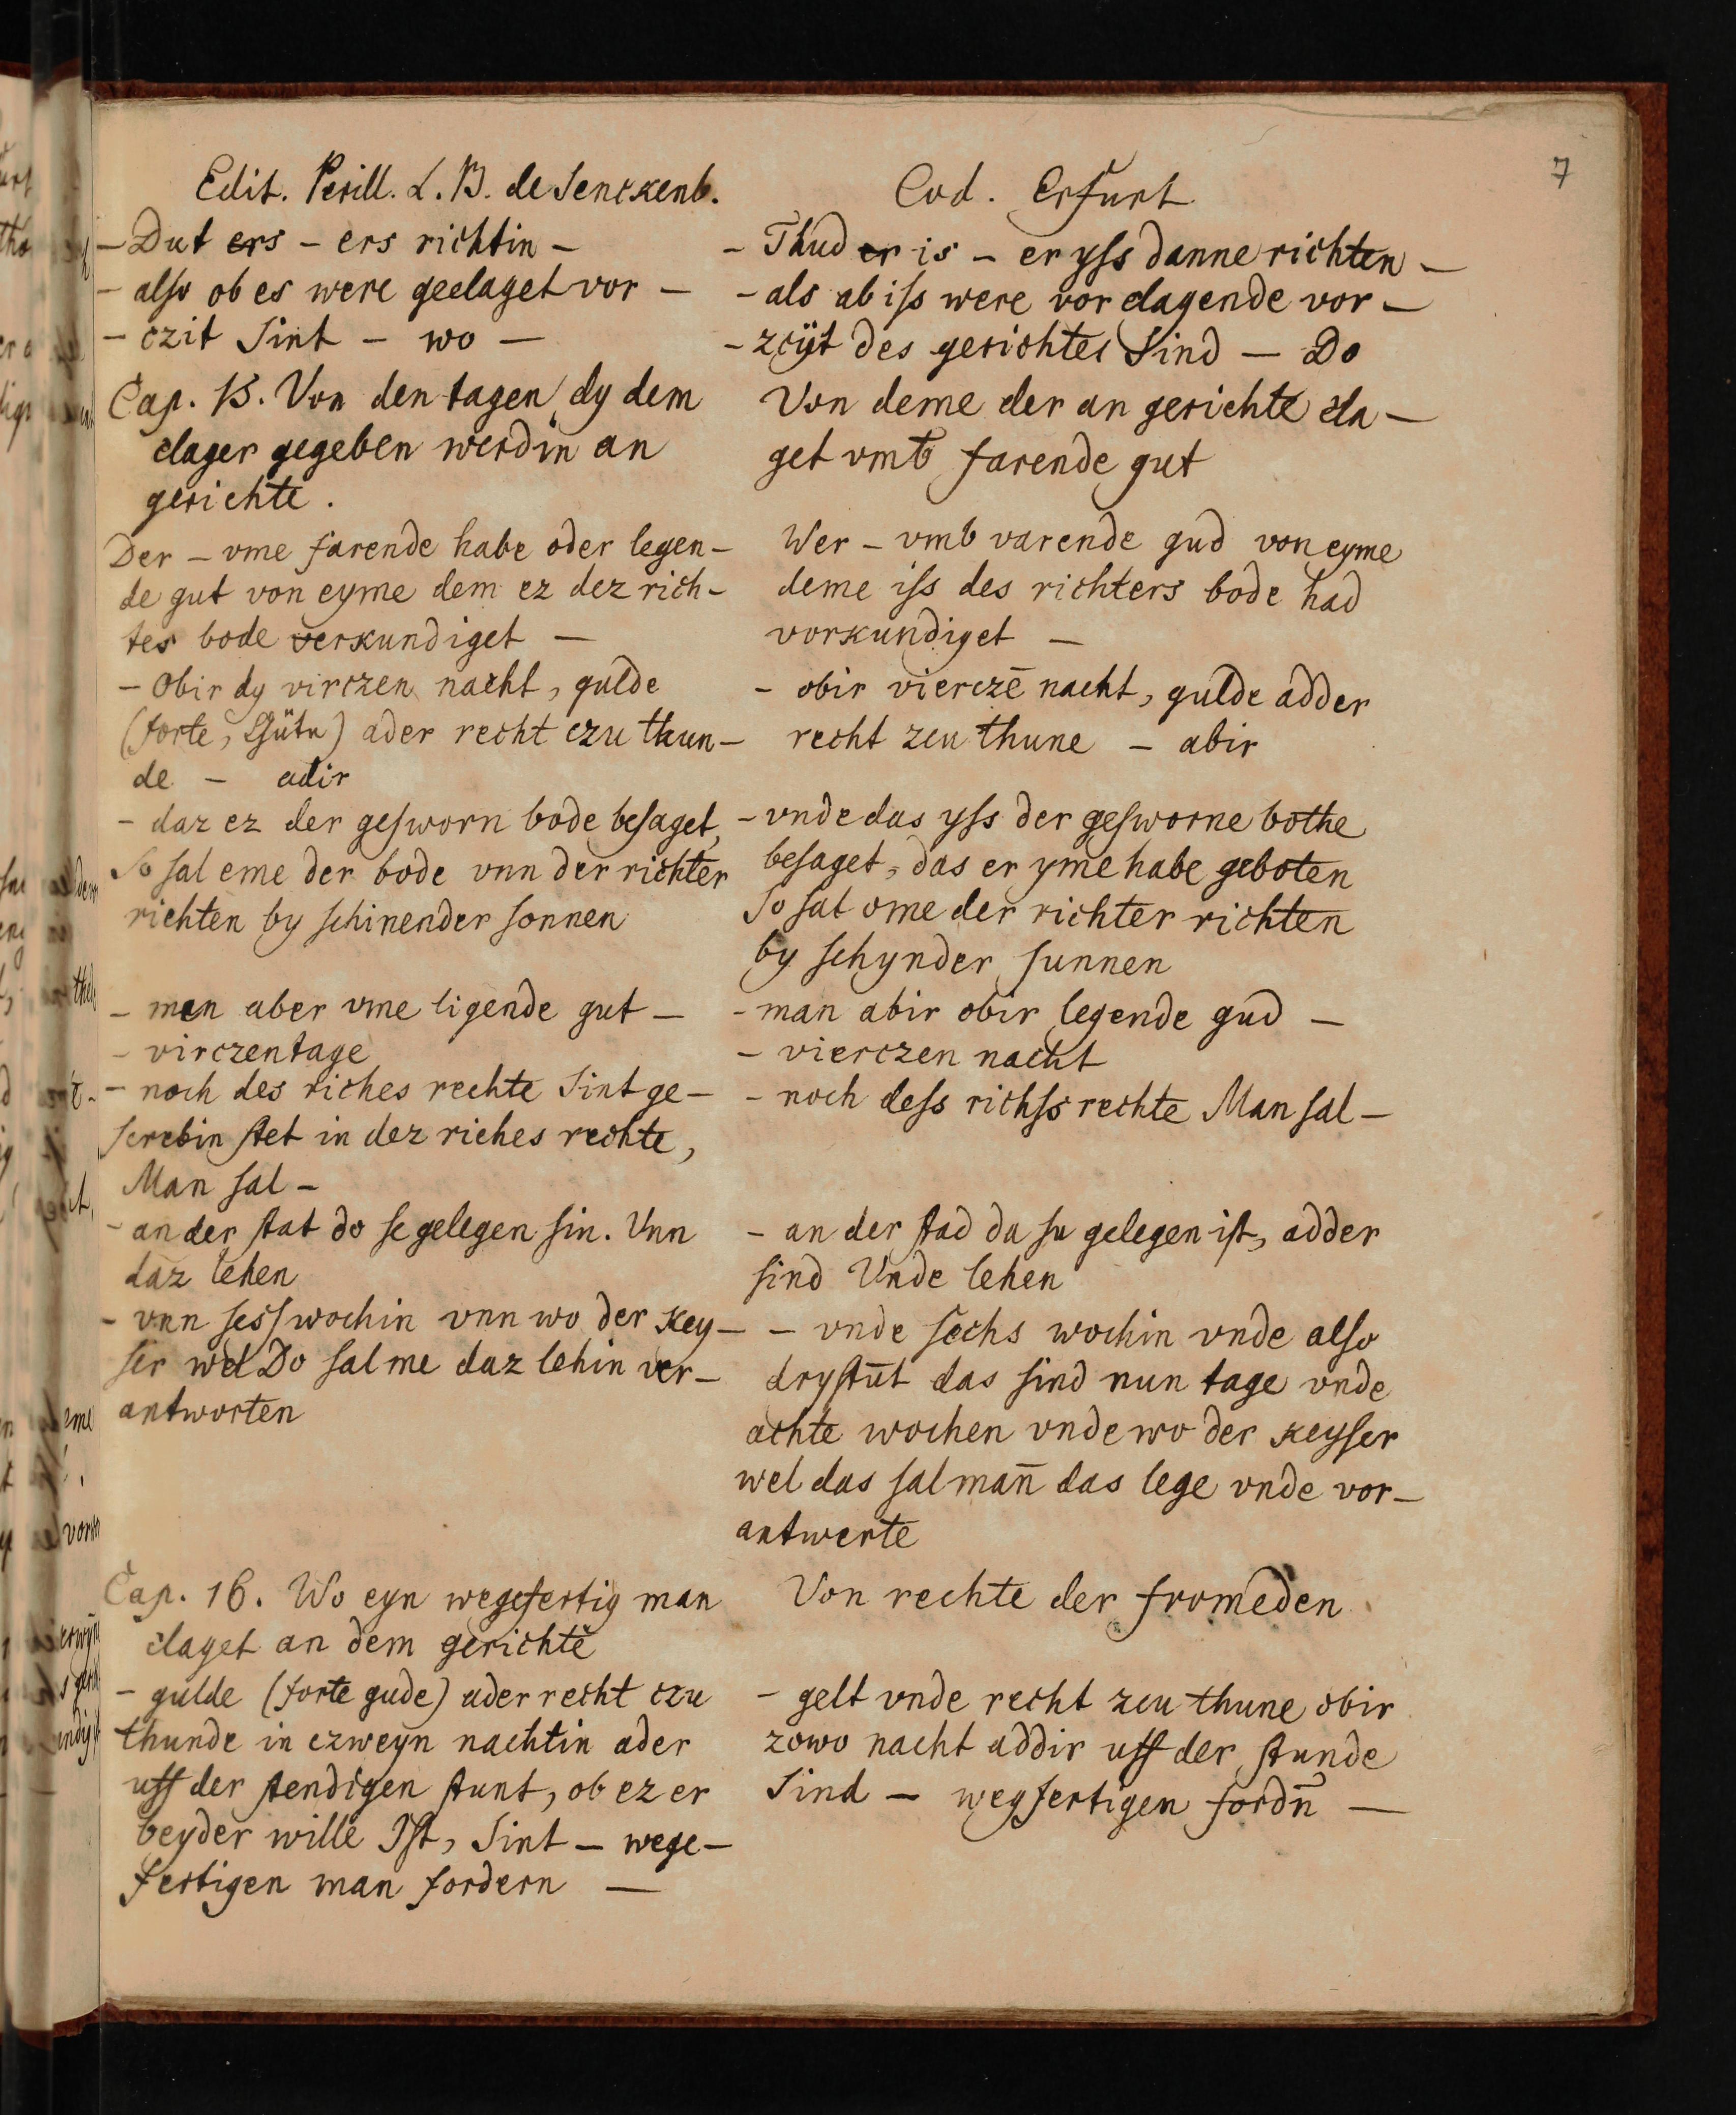 7
Edit. Perill. L. B. de Senckenb.
- Dut ers - ers richtin -
- also ob es were geclaget vor -
- czit Sint - wo -
Cap. 15. Von den tagen dy dem
clager gegeben werdin an
gerichte.
Der - vme farende habe oder legen-
de gut von eyme dem ez dez rich-
tes bode verkundiget -
- obir dy virczen nacht, gulde
(forte, Güte) ader recht czu thun-
de - adir
- daz ez der gesworn bode besaget,
So sal eme der bode vnn der richter
richten by schinender sonnen
- men aber vme ligende gut -
- virczentage
- noch des riches rechte Sint ge-
screbin stet in dez riches rechte,
Man sal -
- an der stat do se gelegen sin. Vnn
daz lehen
- vnn sess wochin vnn wo der Key-
ser wel Do sal me daz lehin ver-
antworten
Cap. 16. Wo eyn wegefertig man
claget an dem gerichte
- gulde (forte gude) ader recht czu
thunde in czweyn nachtin ader
uff der stendigen stunt, ob ez er
beyder wille Ist, Sint - wege-
fertigen man fordern -
Cod. Erfurt
- Thud er is - er yss danne richten -
- als ab iss were vor clagende vor -
- zcÿt des gerichtes Sind - Do
Von deme der an gerichte cla-
get vmb farende gut
Wer - vmb varende gud von eyme
deme iss des richters bode had
vorkundiget -
- obir vierczē nacht, gulde adder
recht zcu thune - abir
- vnde das yss der gesworne bothe
besaget, das er yme habe geboten
So sal ome der richter richten
by schynder sunnen
- man abir obir legende gud -
- vierczen nacht
- noch dess richss rechte Man sal -
- an der stad da su gelegen ist, adder
sind Vnde lehen
- vnde sechs wochin vnde also
drystūt das sind nun tage vnde
achte wochen vnde wo der keyser
wel das sal man̄ das lege vnde vor-
antwerte
Von rechte der fromeden
- gelt vnde recht zcu thune obir
zowo nacht addir uff der stunde
Sind - wegfertigen fordn̄ -